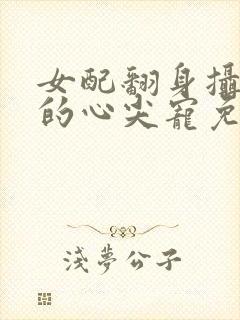 女配翻身攝
的心尖寵免
淺夢公子